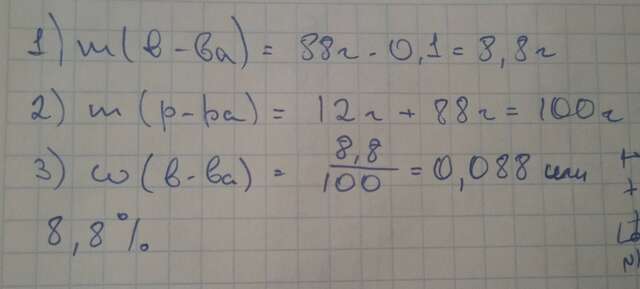 1) m(в-ва) = 88г · 0,1 = 8,8г
2) m(р-ра) = 12г + 88г = 100г
3) ω(в-ва) = 8,8/100 = 0,088 или
8,8%